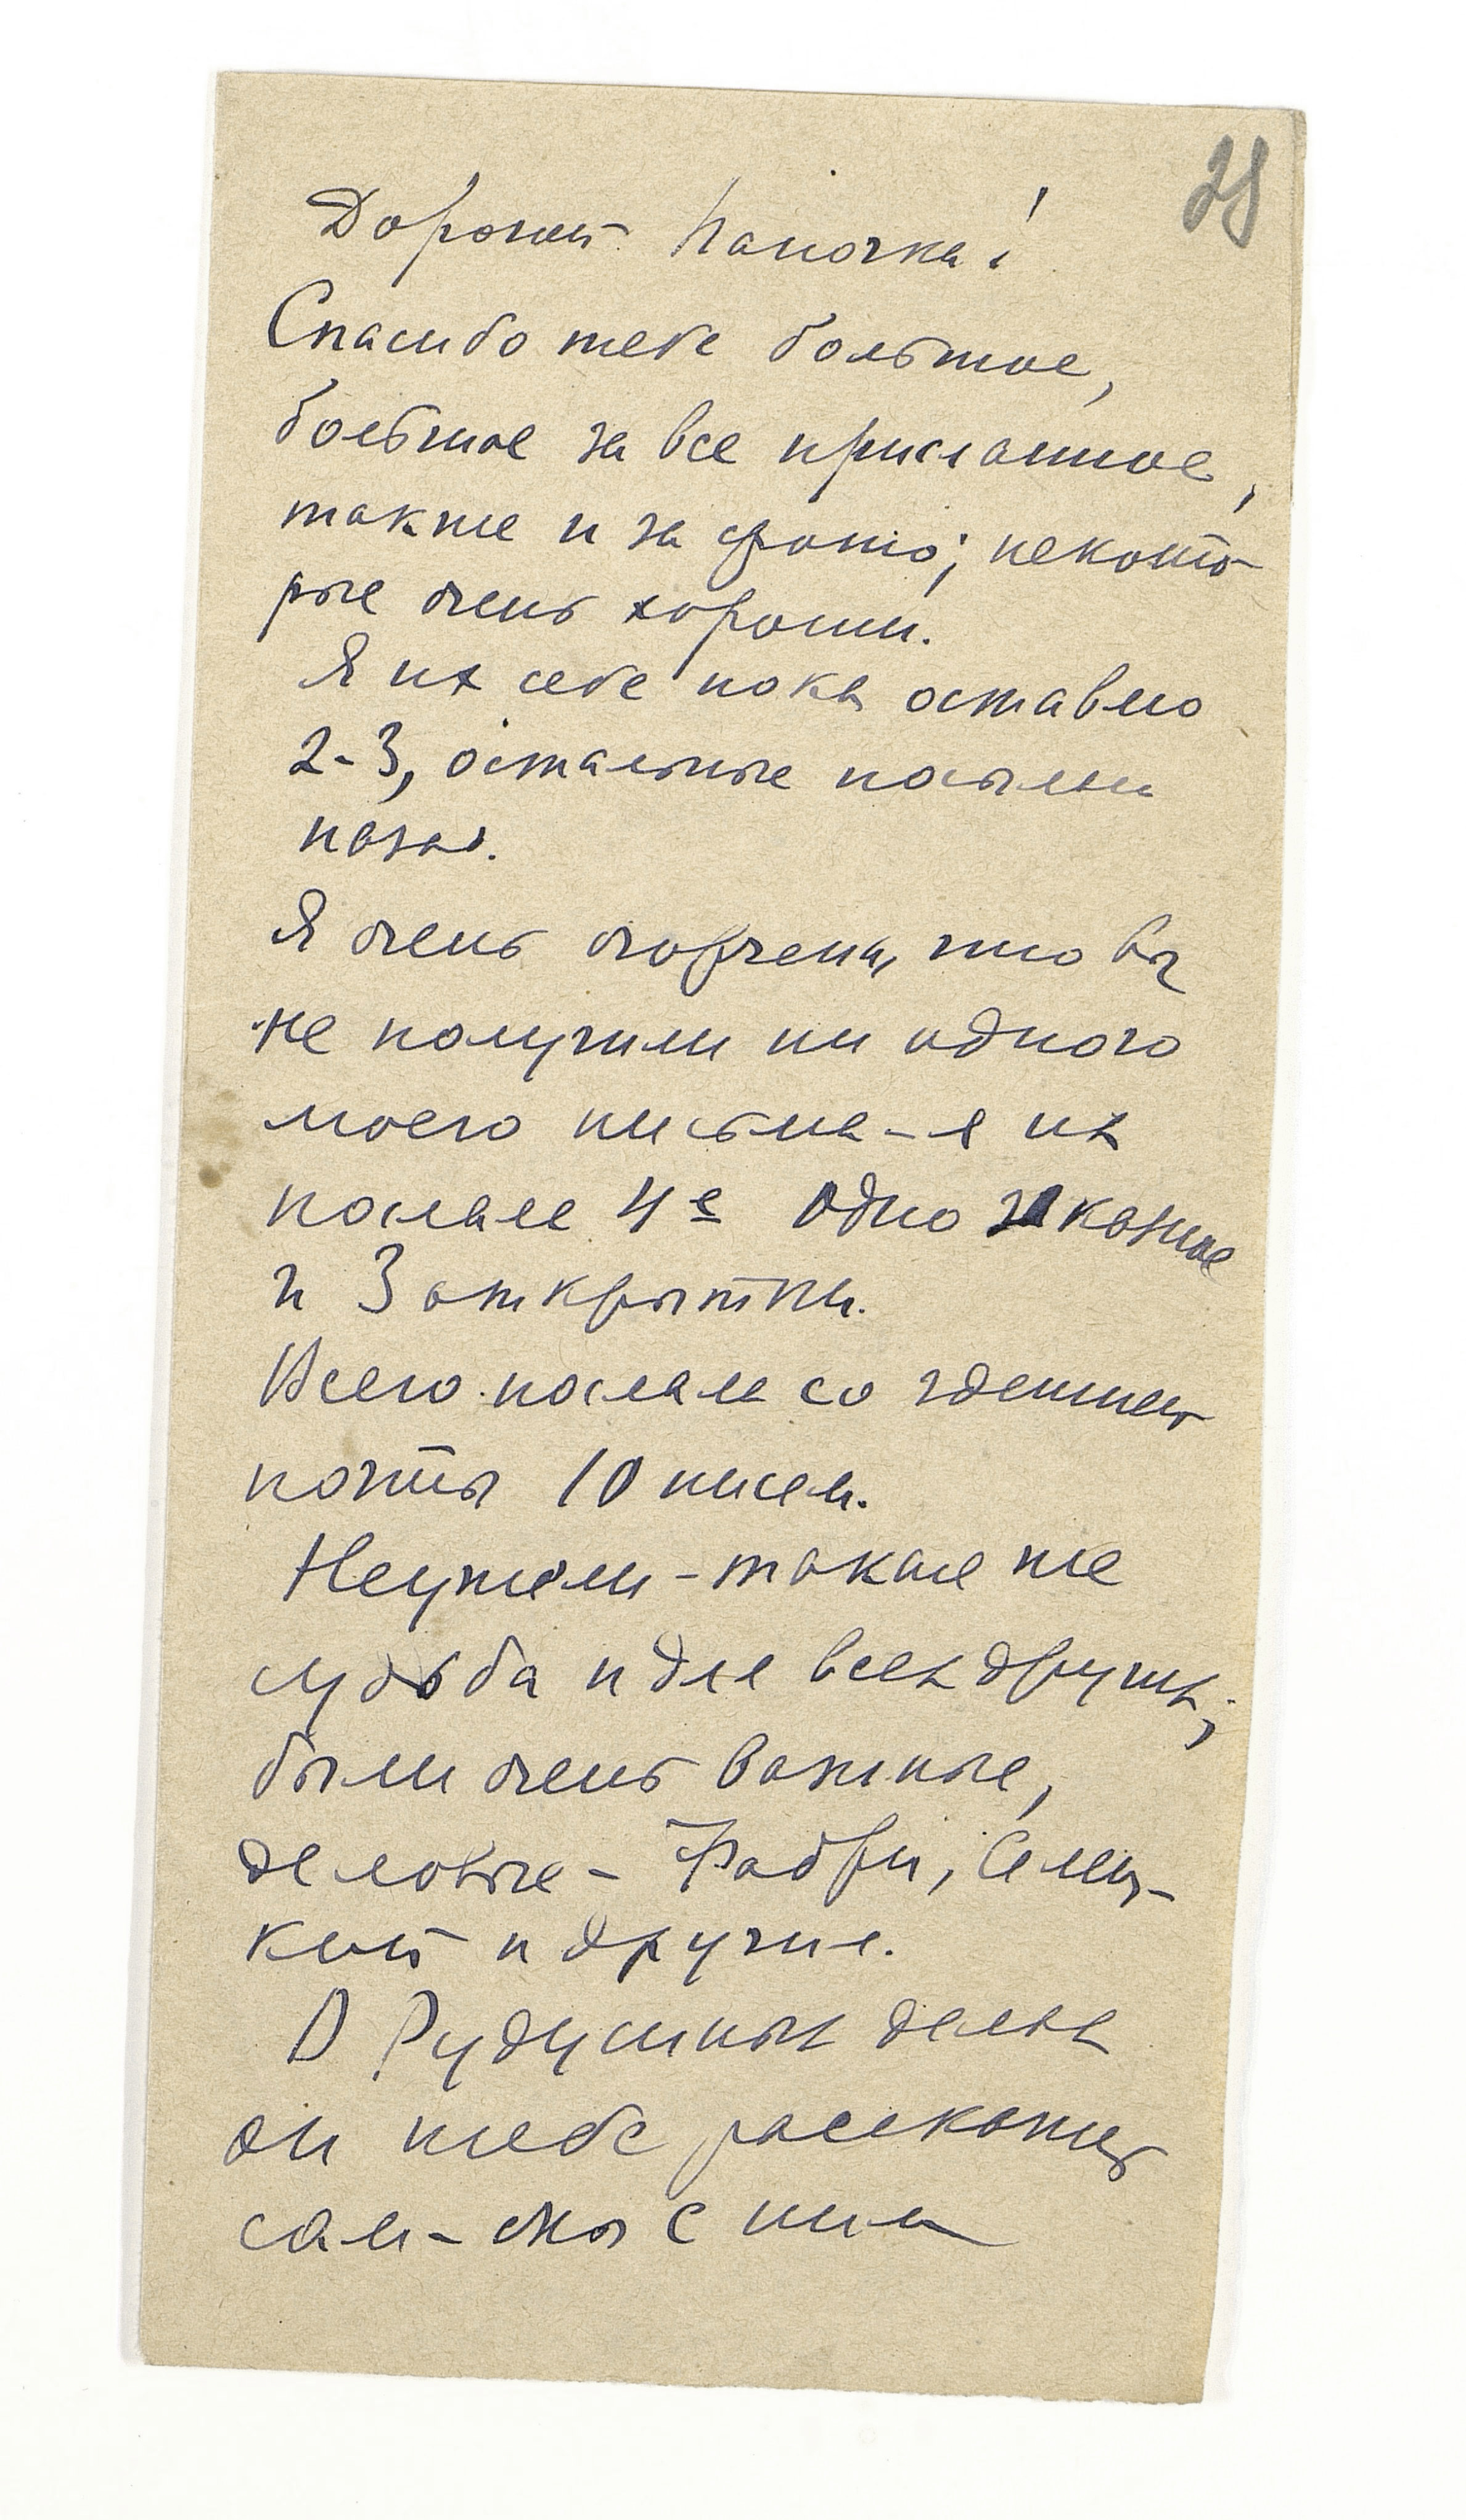 28
Дорогой Папочка!
Спасибо тебе большое,
большое за все присланное,
также и за фото; некото-
рые очень хороши.
Я их себе пока оставлю
2-3, остальные пошлю
назад.
Я очень огорчена, что вы
не получили ни одного
моего письма - я их
послала 4е Одно заказное
и 3 открытки.
Всего послала со здешней
почты 10 писем.
Неужели - такая же
судьба и для всех других;
были очень важные,
деловые - Фабри,
и другие.
О Рудушиных делах
он тебе расскажет
сам - мы с ним